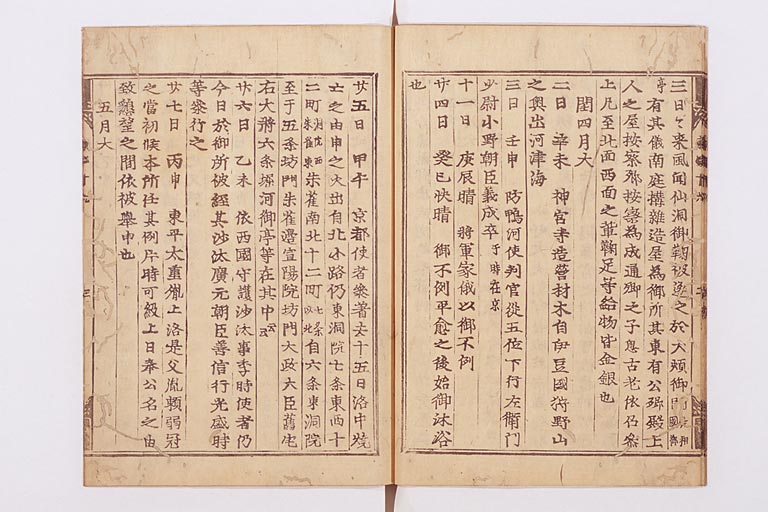 有其儀南庭構雜造屋為御所其東有公卿殿上
人之屋按察卿按察為成通卿之子息古老依召參
上凡至北面西面之輩鞠足等給物皆金銀也
閏四月大
二日 辛未 神宮寺造營材木自伊豆國狩野山
之奥出河津海
三日 壬申 防鴨河使判官從五位下行左衛門
少尉小野朝臣義成卒于時在京
十一日 庚辰晴 將軍家俄以御不例
廿四日 癸巳快晴 御不例平愈之後始御沐浴
也
廿五日 甲午 京都使者參著去十五日洛中燒
亡之由申之火出自北小路仍東洞院七条東西十
二町朱雀南北十二町自六条東洞院
至于五条坊門朱雀邊宣陽院坊門大政大臣舊宅
右大將六条堀河御亭等在其中云云
廿六日 乙未 依西國守護沙汰事季時使者仍
今日於御所被經其沙汰廣元朝臣善信行光盛時
等參行之
廿七日 丙申 東平太重胤上洛是父胤頼弱冠
之當初候本所任其例片時可級上日奉公名之由
致鶴望之間依被舉申也
五月大